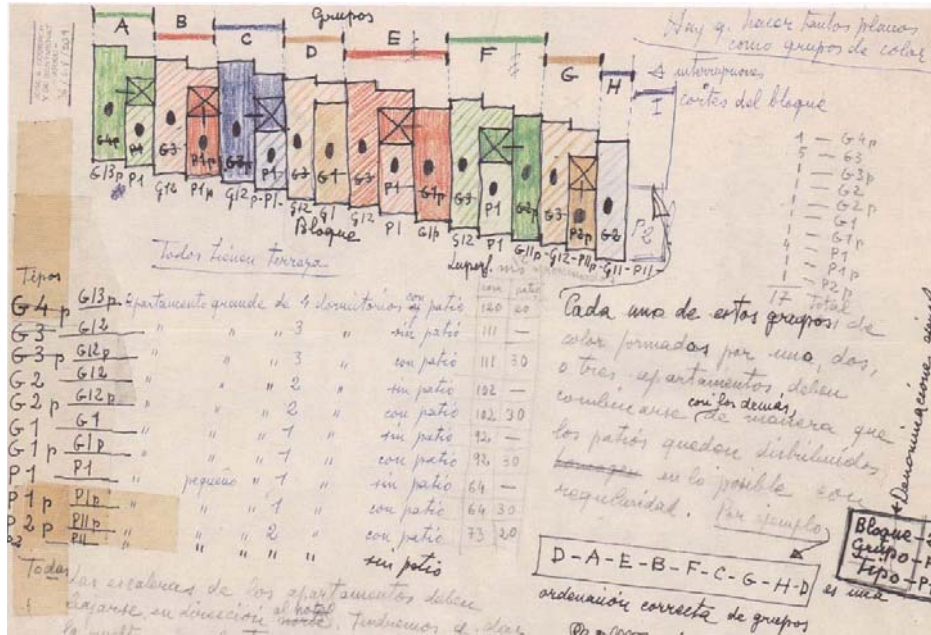 Grupos
A B C D E F G H
Hay q. hacer tantos planos
como grupos de color
interrupciones
cortes del bloque
G4p P1 G3 P1p G3p P1 G3 G1 G3 P1 G1p G3 P1 G2p G3 P2p G2 P2
G13p P1 G12 P1p G12p-P1- G12 G1 G12 P1 G1p G12 P1 G11p-G12-P11p-G11-P11-
Bloque
1 — G4p
5 — G3
— G3p
— G2
— G2p
— G1
— G1p
4 — P1
— P1p
— P2p
17 Total
Todos tienen terraza
Superf.
Tipos
G4p G13p. Apartamento grande de 4 dormitorios con patio
G3 G12 " " " 3 " sin patio 111 —
G3p G12p " " " 3 " con patio 111 30
G2 G12 " " " 2 " sin patio 102 —
G2p G12p " " " 2 " con patio 102 30
G1 G1 " " " 1 " sin patio 92 —
G1p G1p " " " 1 " con patio 92 30
P1 P1 " pequeño " 1 " sin patio 64 —
P1p P1p " " " 1 " con patio 64 30
P2p P11p " " " 2 " con patio 73 20
P2 P11 " " " " sin patio
Cada uno de estos grupos de
color formados por uno, dos,
o tres apartamentos deben
combinarse con los demás, de manera que
los patios quedan distribuidos
en lo posible con
regularidad. Por ejemplo
D-A-E-B-F-C-G-H-D
ordenación correcta de grupos
es una
Denominaciones
Bloque-
Grupo-
Tipo-P
Todas las escaleras de los apartamentos deben
bajarse en dirección al hotel norte. Tendremos q. dear
la